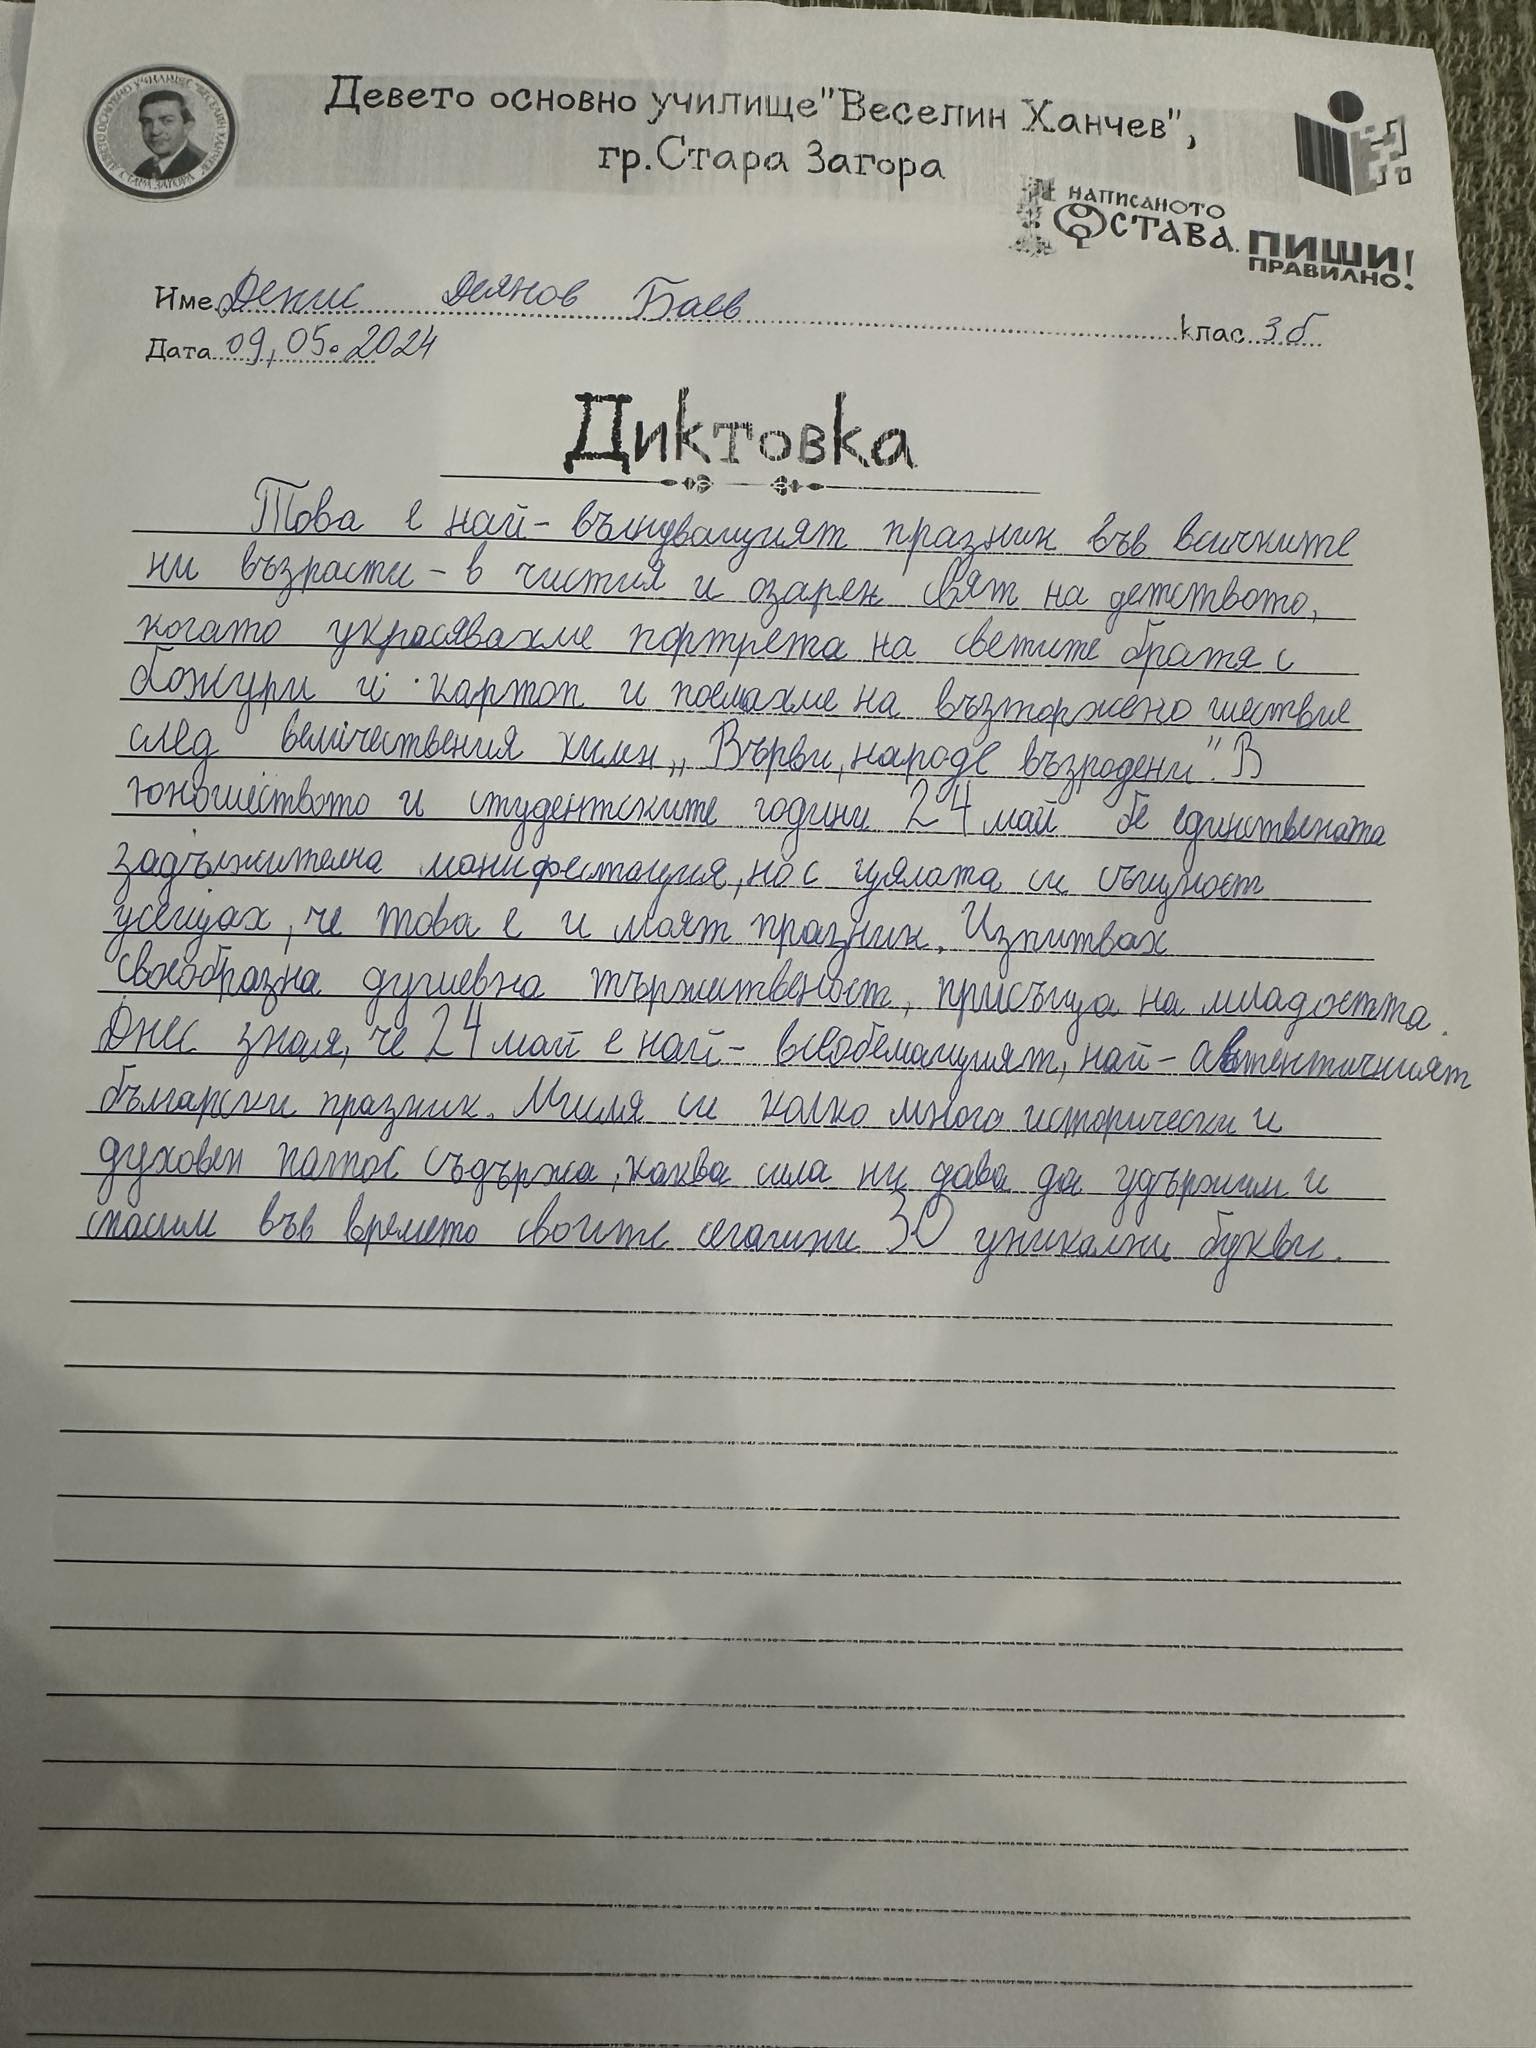 ДЕВЕТО ОСНОВНО УЧИЛИЩЕ "ВЕСЕЛИН ХАНЧЕВ" СТАРА ЗАГОРА
Девето основно училище "Веселин Ханчев",
гр. Стара Загора
НАПИСАНОТО
ОСТАВА. ПИШИ
ПРАВИЛНО!
Име Денис Деянов Баев клас 3 б
Дата 09.05.2024
Диктовка
Това е най-вълнуващият празник във всичките
ни възрасти - в чистия и озарен свят на детството,
когато украсявахме портрета на светите братя с
божури и картоп и поемахме на възторжено шествие
след величествения химн „Върви, народе възродени". В
юношеството и студентските години 24 май бе единствената
задължителна манифестация, но с цялата си същност
усещах, че това е и моят празник. Изпитвах
своеобразна душевна тържественост, присъща на младостта.
Днес зная, че 24 май е най-всеобемащият, най-автентичният
български празник. Мисля си колко много исторически и
духовен патос съдържа, каква сила ни дава да удържим и
спасим във времето своите сегашни 30 уникални букви.